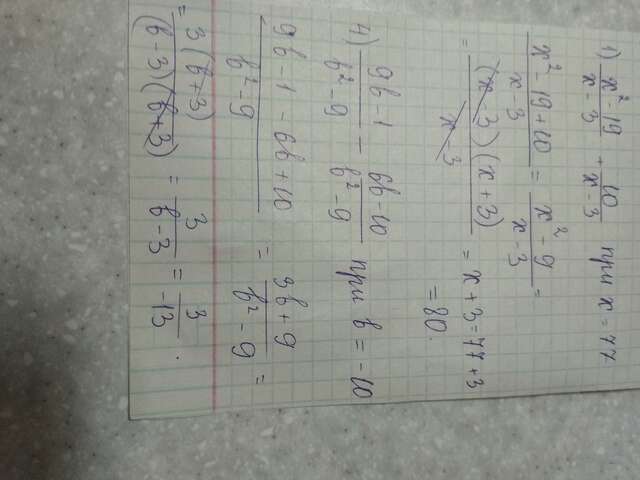 1) (x² - 19)/(x - 3) + 10/(x - 3) при x = 77
(x² - 19 + 10)/(x - 3) = (x² - 9)/(x - 3) =
= ((x - 3)(x + 3))/(x - 3) = x + 3 = 77 + 3
= 80.
4) (9b - 1)/(b² - 9) - (6b - 10)/(b² - 9) при b = -10
(9b - 1 - 6b + 10)/(b² - 9) = (3b + 9)/(b² - 9) =
= (3(b + 3))/((b - 3)(b + 3)) = 3/(b - 3) = 3/(-13).